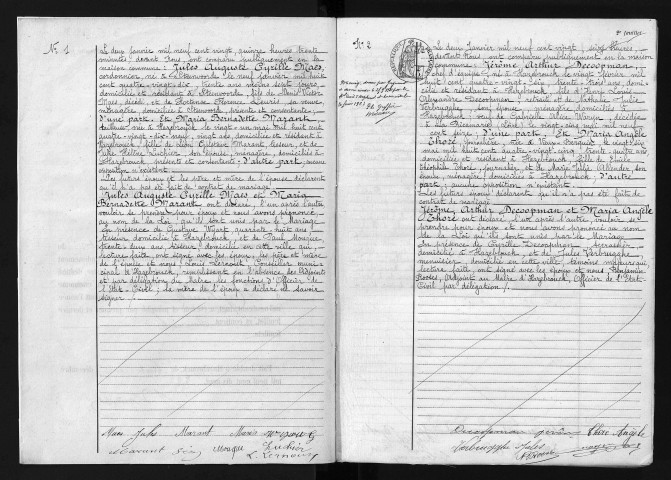 N° 1
Le deux janvier mil neuf cent vingt, quinze heures trente
minutes, devant Nous, ont comparu publiquement en la
maison commune: Jules Auguste Cyrille Maes,
cordonnier, né à Steenvoorde, le neuf janvier mil huit
cent quatre-vingt-six, trente trois ans
domicilié et résident à Steenvoorde, fils de Henri Victor
Maes, décédé, et de Hortense Florence sa veuve,
ménagère, domiciliée à Steenvoorde, présente et consentante;
d'une part, Et Maria Bernadette Marant,
née à Hazebrouck, le vingt-un mai mil huit cent
quatre-vingt-dix-neuf, vingt ans, domiciliée et résidant à
Hazebrouck, fille de Marant, tisseur, et de
ménagère, domiciliés à
Hazebrouck, présents et consentants; d'autre part; aucune
opposition n'existant.
Les futurs époux et les père et mère de l'épouse déclarent
qu'il n'a pas été fait de contrat de mariage.
Jules Auguste Cyrille Maes et Maria
Bernadette Marant ont déclaré l'un après l'autre
vouloir se prendre pour époux et nous avons prononcé
au nom de la Loi qu'ils sont unis par le Mariage.
En présence de Gustave Wyart, quarante-huit ans,
tisseur, domicilié à Hazebrouck, et de Paul Monque,
trente deux ans, tisseur, domicilié en cette ville qui,
lecture faite, ont signé avec les époux, les père et mère
de l'épouse et nous Lernout, Conseiller muni-
cipal à Hazebrouck, remplissant en l'absence des Adjoints
et par délégation du Maire, les fonctions d'Officier de
l'Etat-Civil; la mère de l'époux a déclaré ne savoir
signer.
Maes Jules Marant Maria Wyart G
Marant Monque
Lernout
2e feuillet
N° 2
Le deux Janvier mil neuf cent vingt, seize heures,
devant Nous ont comparu publiquement en la maison
commune: Jérôme Arthur Decoopman,
chef d'équipe, né à Hazebrouck, le vingt février mil
huit cent quatre-vingt-six, trente trois ans, domi-
cilié et résidant à Hazebrouck, fils d'Henri Louis
Alexandre Decoopman, retraité et de Nathalie Julie
Verbrugghe, son épouse, ménagère, domiciliés à
Hazebrouck; veuf de Gabrielle Alice décédée
à la Ricamarie, (Loire), le vingt cinq août mil neuf
cent seize; d'une part, Et Maria Angèle
Thoré, née à Vieux-Berquin, le
mai mil huit cent quatre-vingt-cinq, trente quatre ans,
domiciliée et résidant à Hazebrouck, fille de Emile
Théophile Thoré, journalier, et de Marie Julie
son épouse, ménagère, domiciliés à Hazebrouck; d'autre
part; aucune opposition n'existant.
Les futurs époux déclarent qu'il n'a pas été fait de
contrat de mariage.
Jérôme Arthur Decoopman et Maria Angèle
Thoré ont déclaré l'un après l'autre vouloir se
prendre pour époux et nous avons prononcé au nom
de la Loi qu'ils sont unis par le Mariage.
En présence de Cyrille Decoopman, serrurier,
domicilié à Hazebrouck, et de Jules Verbrugghe,
menuisier, domicilié en cette ville, témoins majeurs qui,
lecture faite, ont signé avec les époux et nous Benjamin
Adjoint au Maire d'Hazebrouck, Officier de l'Etat-
Civil par délégation.
Decoopman Jérôme Thoré Angèle
Verbrugghe Jules